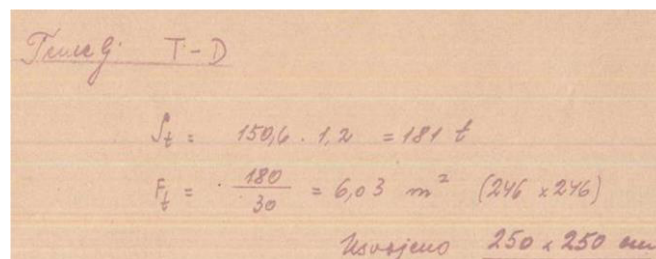 Temelj T-D
St = 150,6 · 1,2 = 181 t
Ft = 180/30 = 6,03 m² (246 x 246)
Usvojeno 250 x 250 cm